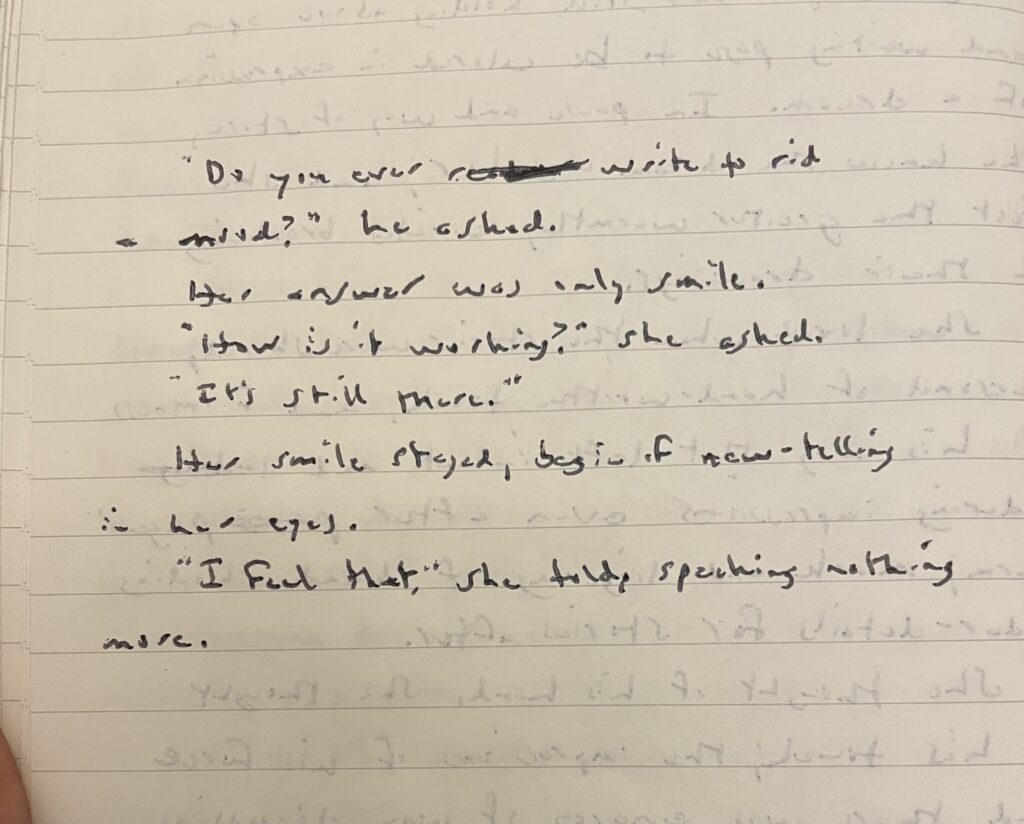 "Do you ever write to rid
a mood?" he asked.
Her answer was only smile.
"How is it working?" she asked.
"It's still there."
Her smile stayed, begin of new-telling
in her eyes.
"I feel that," she told, speaking nothing
more.